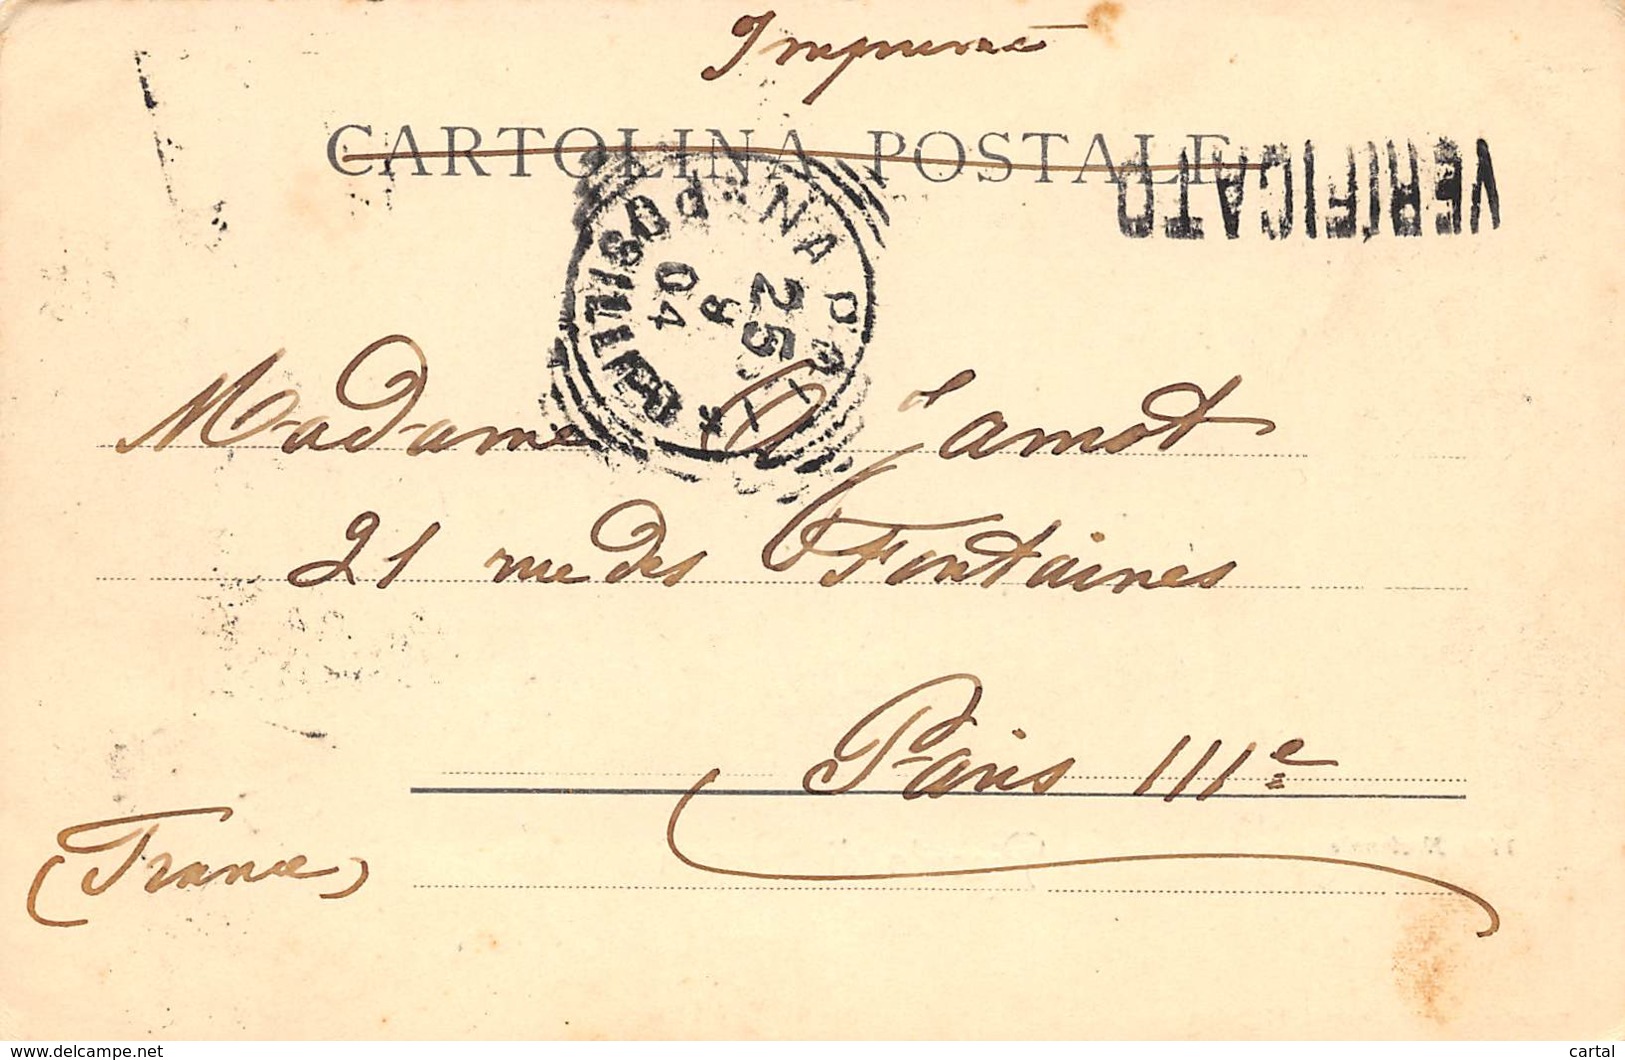 Imprimé
CARTOLINA POSTALE
VERIFICATO
NAPOLI * POSILLIPO *
25 8 04
Madame A. Jamot
21 rue des Fontaines
Paris IIIe
(France)
www.delcampe.net
cartal